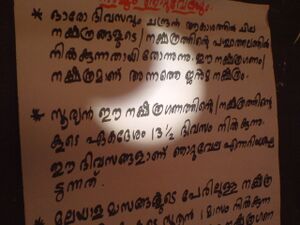 * ഓരോ ദിവസവും ചന്ദ്രൻ ആകാശത്തിൽ ചില
നക്ഷത്രങ്ങളുടെ/നക്ഷത്രത്തിന്റെ പശ്ചാത്തലത്തിൽ
നിൽക്കുന്നതായി തോന്നുന്നു. ഈ നക്ഷത്രഗണം/
നക്ഷത്രമാണ് അന്നത്തെ ജന്മ നക്ഷത്രം.
* സൂര്യൻ ഈ നക്ഷത്രഗണത്തിന്റെ/നക്ഷത്രത്തിന്റെ
കൂടെ ഏകദേശം 13 ½ ദിവസം നിൽക്കുന്നു.
ഈ ദിവസങ്ങളാണ് ഞാറ്റുവേല എന്നറിയപ്പെ
ടുന്നത്.
* മലയാള മാസങ്ങളുടെ പേരിലുള്ള നക്ഷത്ര
സൂര്യൻ 1 മാസം നിൽക്കുന്ന